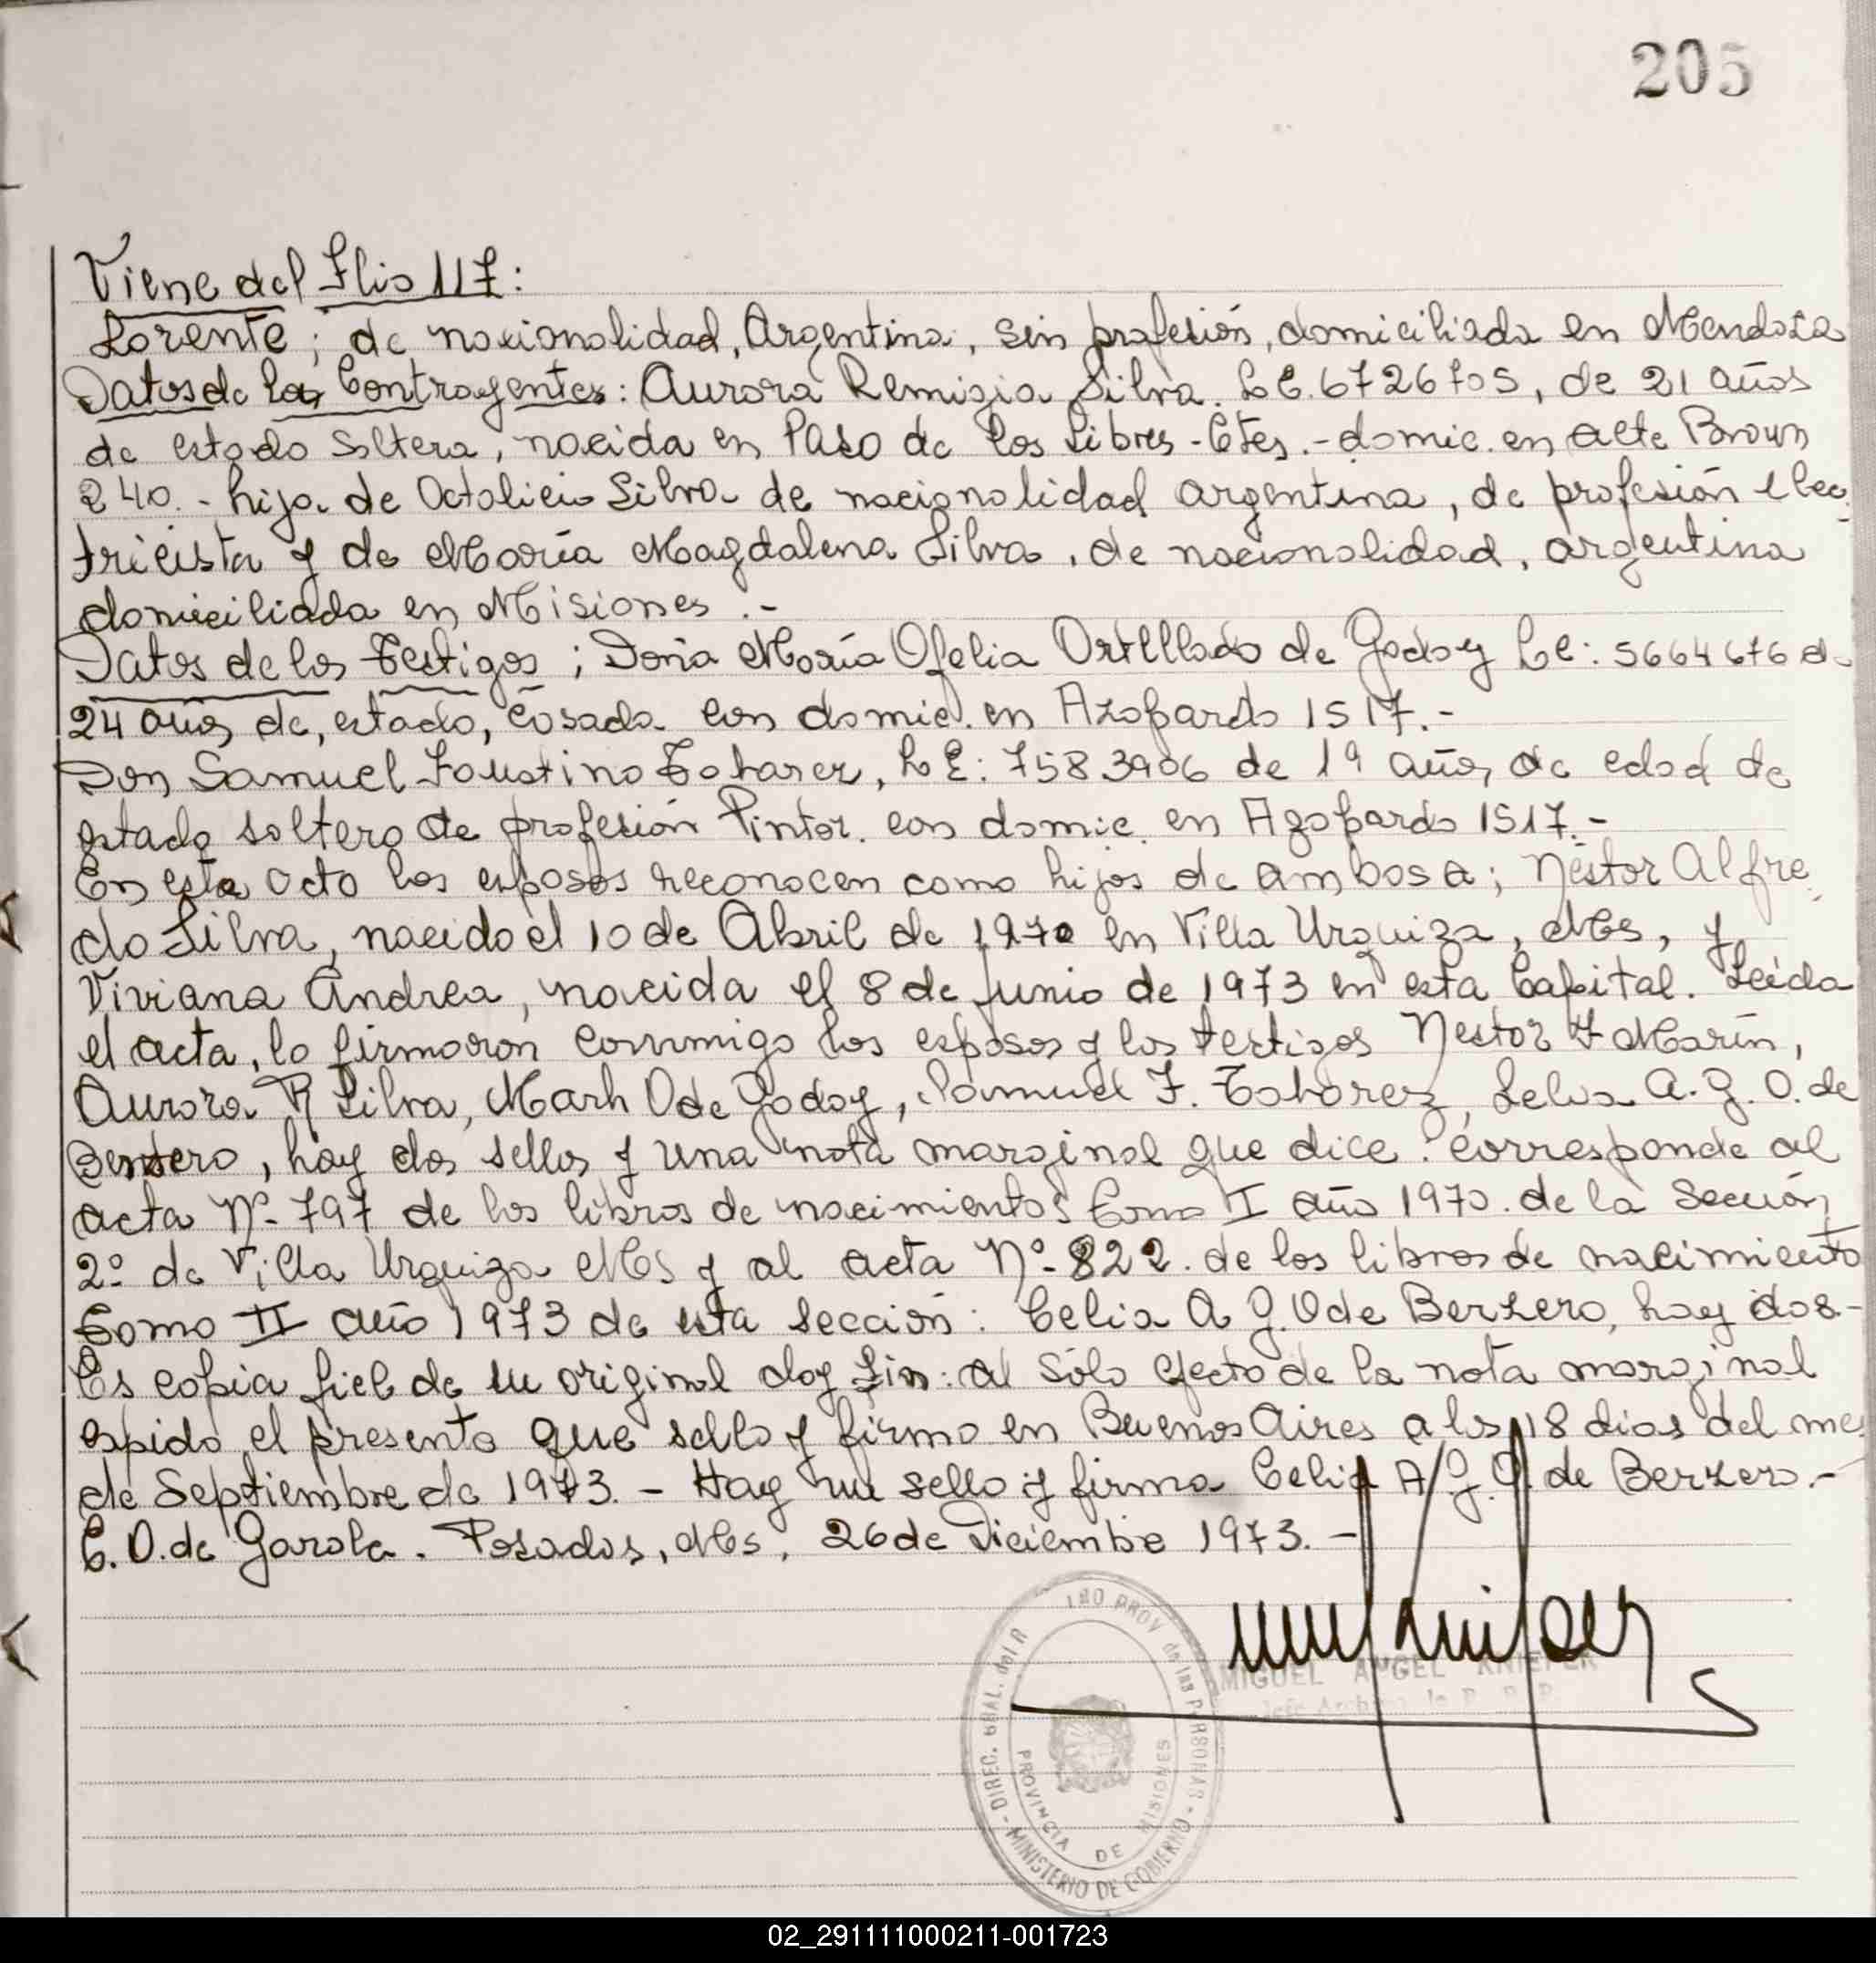 205
Viene del Flio 117:
Lorente; de nacionalidad, Argentina, sin profesión, domiciliada en Mendoza
Datos de la Contrayentes: Aurora Remigia Silva. L C. 6726705, de 21 años
de estado soltera, nacida en Paso de los Libres - Ctes. - domic. en Alte Brown
240. - hija de Octolicio Silva de nacionalidad argentina, de profesión elec
tricista y de María Magdalena Silva, de nacionalidad, argentina
domiciliada en Misiones .-
Datos de los Testigos; Doña María Ofelia Ortelllado de Godoy Lc: 5664676 d
24 años de, estado, casada con domic. en Azopardo 1517.-
Don Samuel Faustino Tabarez, L E: 7583906 de 19 años de edad de
estado soltero de profesión Pintor. con domic. en Azopardo 1517.-
En este acto los esposos reconocen como hijos de ambos a; Néstor Alfre
do Silva, nacido el 10 de Abril de 1970 en Villa Urquiza, Mes, y
Viviana Andrea, nacida el 8 de Junio de 1973 en esta Capital. Leída
el acta, la firmaron conmmigo los esposos y los testigos Nestor F Marín,
Aurora R Silva, Marh O de Godoy, Samuel F. Tabarez, Lelia A. G. O. de
Berzero, hay dos sellos y una nota marginal que dice: corresponde al
acta Nº- 797 de los libros de nacimientos Tomo I año 1970. de la Sección
2º de Villa Urquiza Mes y al acta Nº- 822. de los libros de nacimiento
Tomo II año 1973 de esta sección: Celia A G. O de Berzero, hay dos-
Es copia fiel de su original doy fin: al sólo efecto de la nota marginal
espido el presente que sello y firmo en Buenos Aires a los 18 dias del mes
de Septiembre de 1973. - Hay un sello y firma Celia A G. O. de Berzero.-
C. O. de Garola. Posadas, Mes, 26 de Diciembre 1973.-
MIGUEL ANGEL KNIEPER
DIREC. GRAL. del R PROV de las PERSONAS - MINISTERIO DE GOBIERNO -
PROVINCIA DE MISIONES
02_291111000211-001723